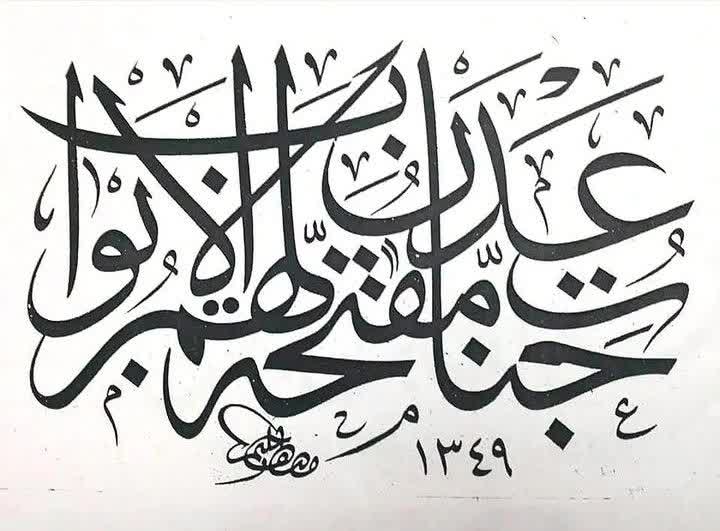 جنّات عدن مّفتّحة لّهم الابواب
١٣٤٩